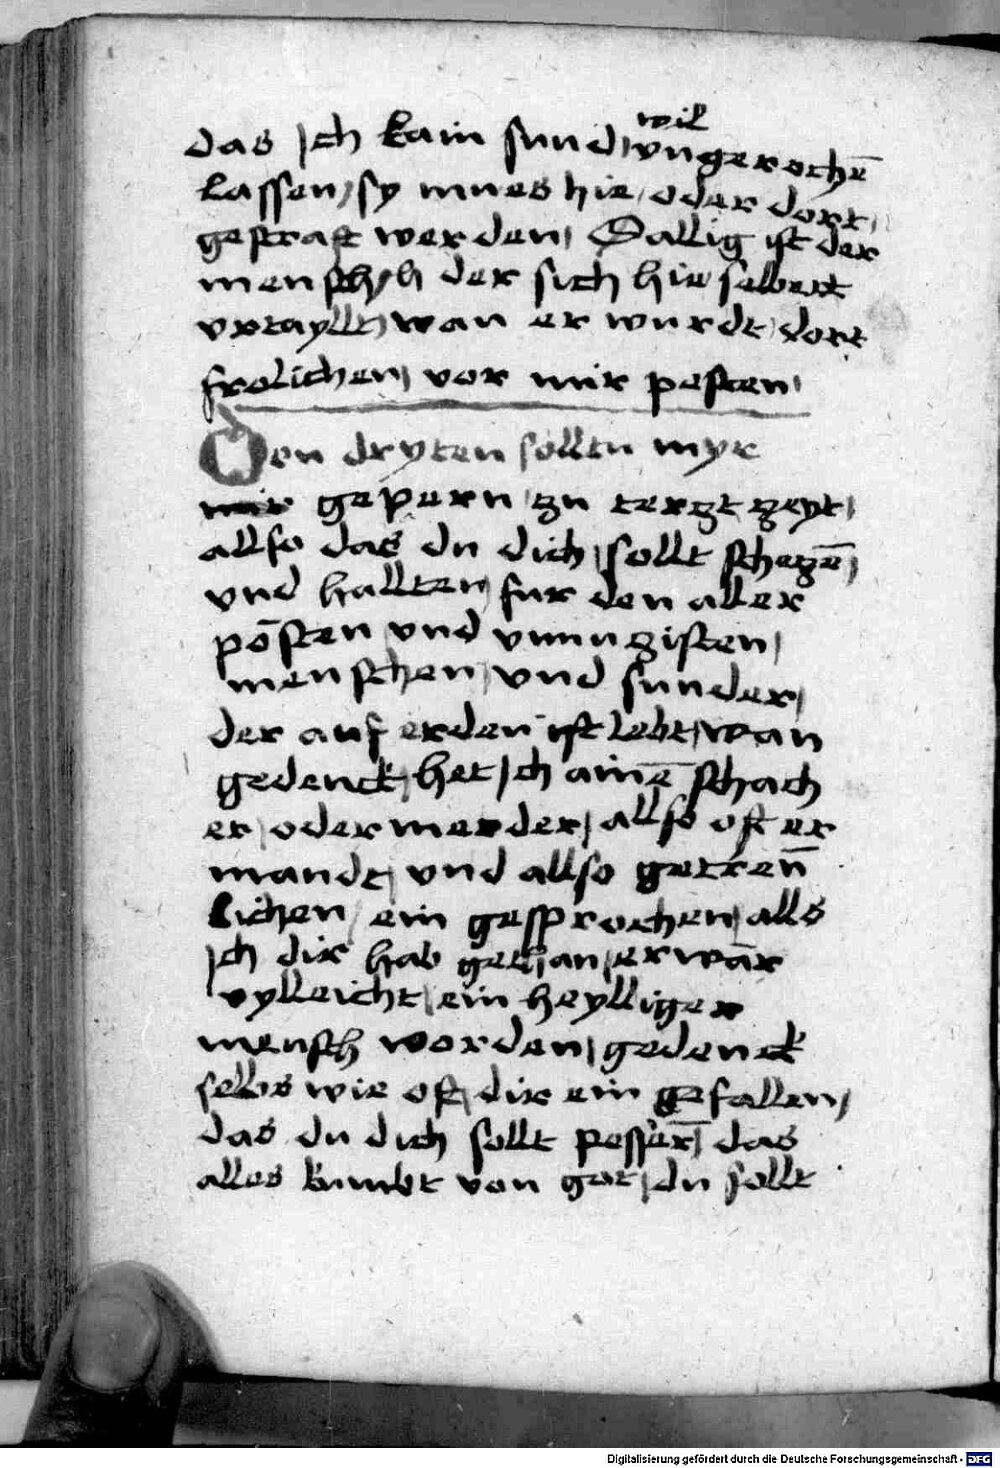 wil
das ich kain sund ungerochē
lassen / sy mues hie / oder dort /
gestraft werden / Sallig ist der
mensch / der sich hie selbert
urtayllt / wan er wurdt dort
frolichen / vor mir pesten /
Den dryten solltu myr
mir gepern / zu tergt zeyt /
allso das du dich / sollt schezē /
und hallten / fur den aller
pōsten und unnugisten /
menschen / und sunder /
der auf erden ist lebt / wan
gedenck / het ich ainē schach
er / oder merder / allso oft er
mandt / und allso getreū
lichen / ein gesprochen / alls
ich dir hab gethan / er wār
vylleicht / ein heylliger
mensch worden / gedenck
selbs wie oft / dir ein gefallen /
das du dich sollt pesserñ / das
alles kumbt von got / du sollt
Digitalisierung gefördert durch die Deutsche Forschungsgemeinschaft - DFG